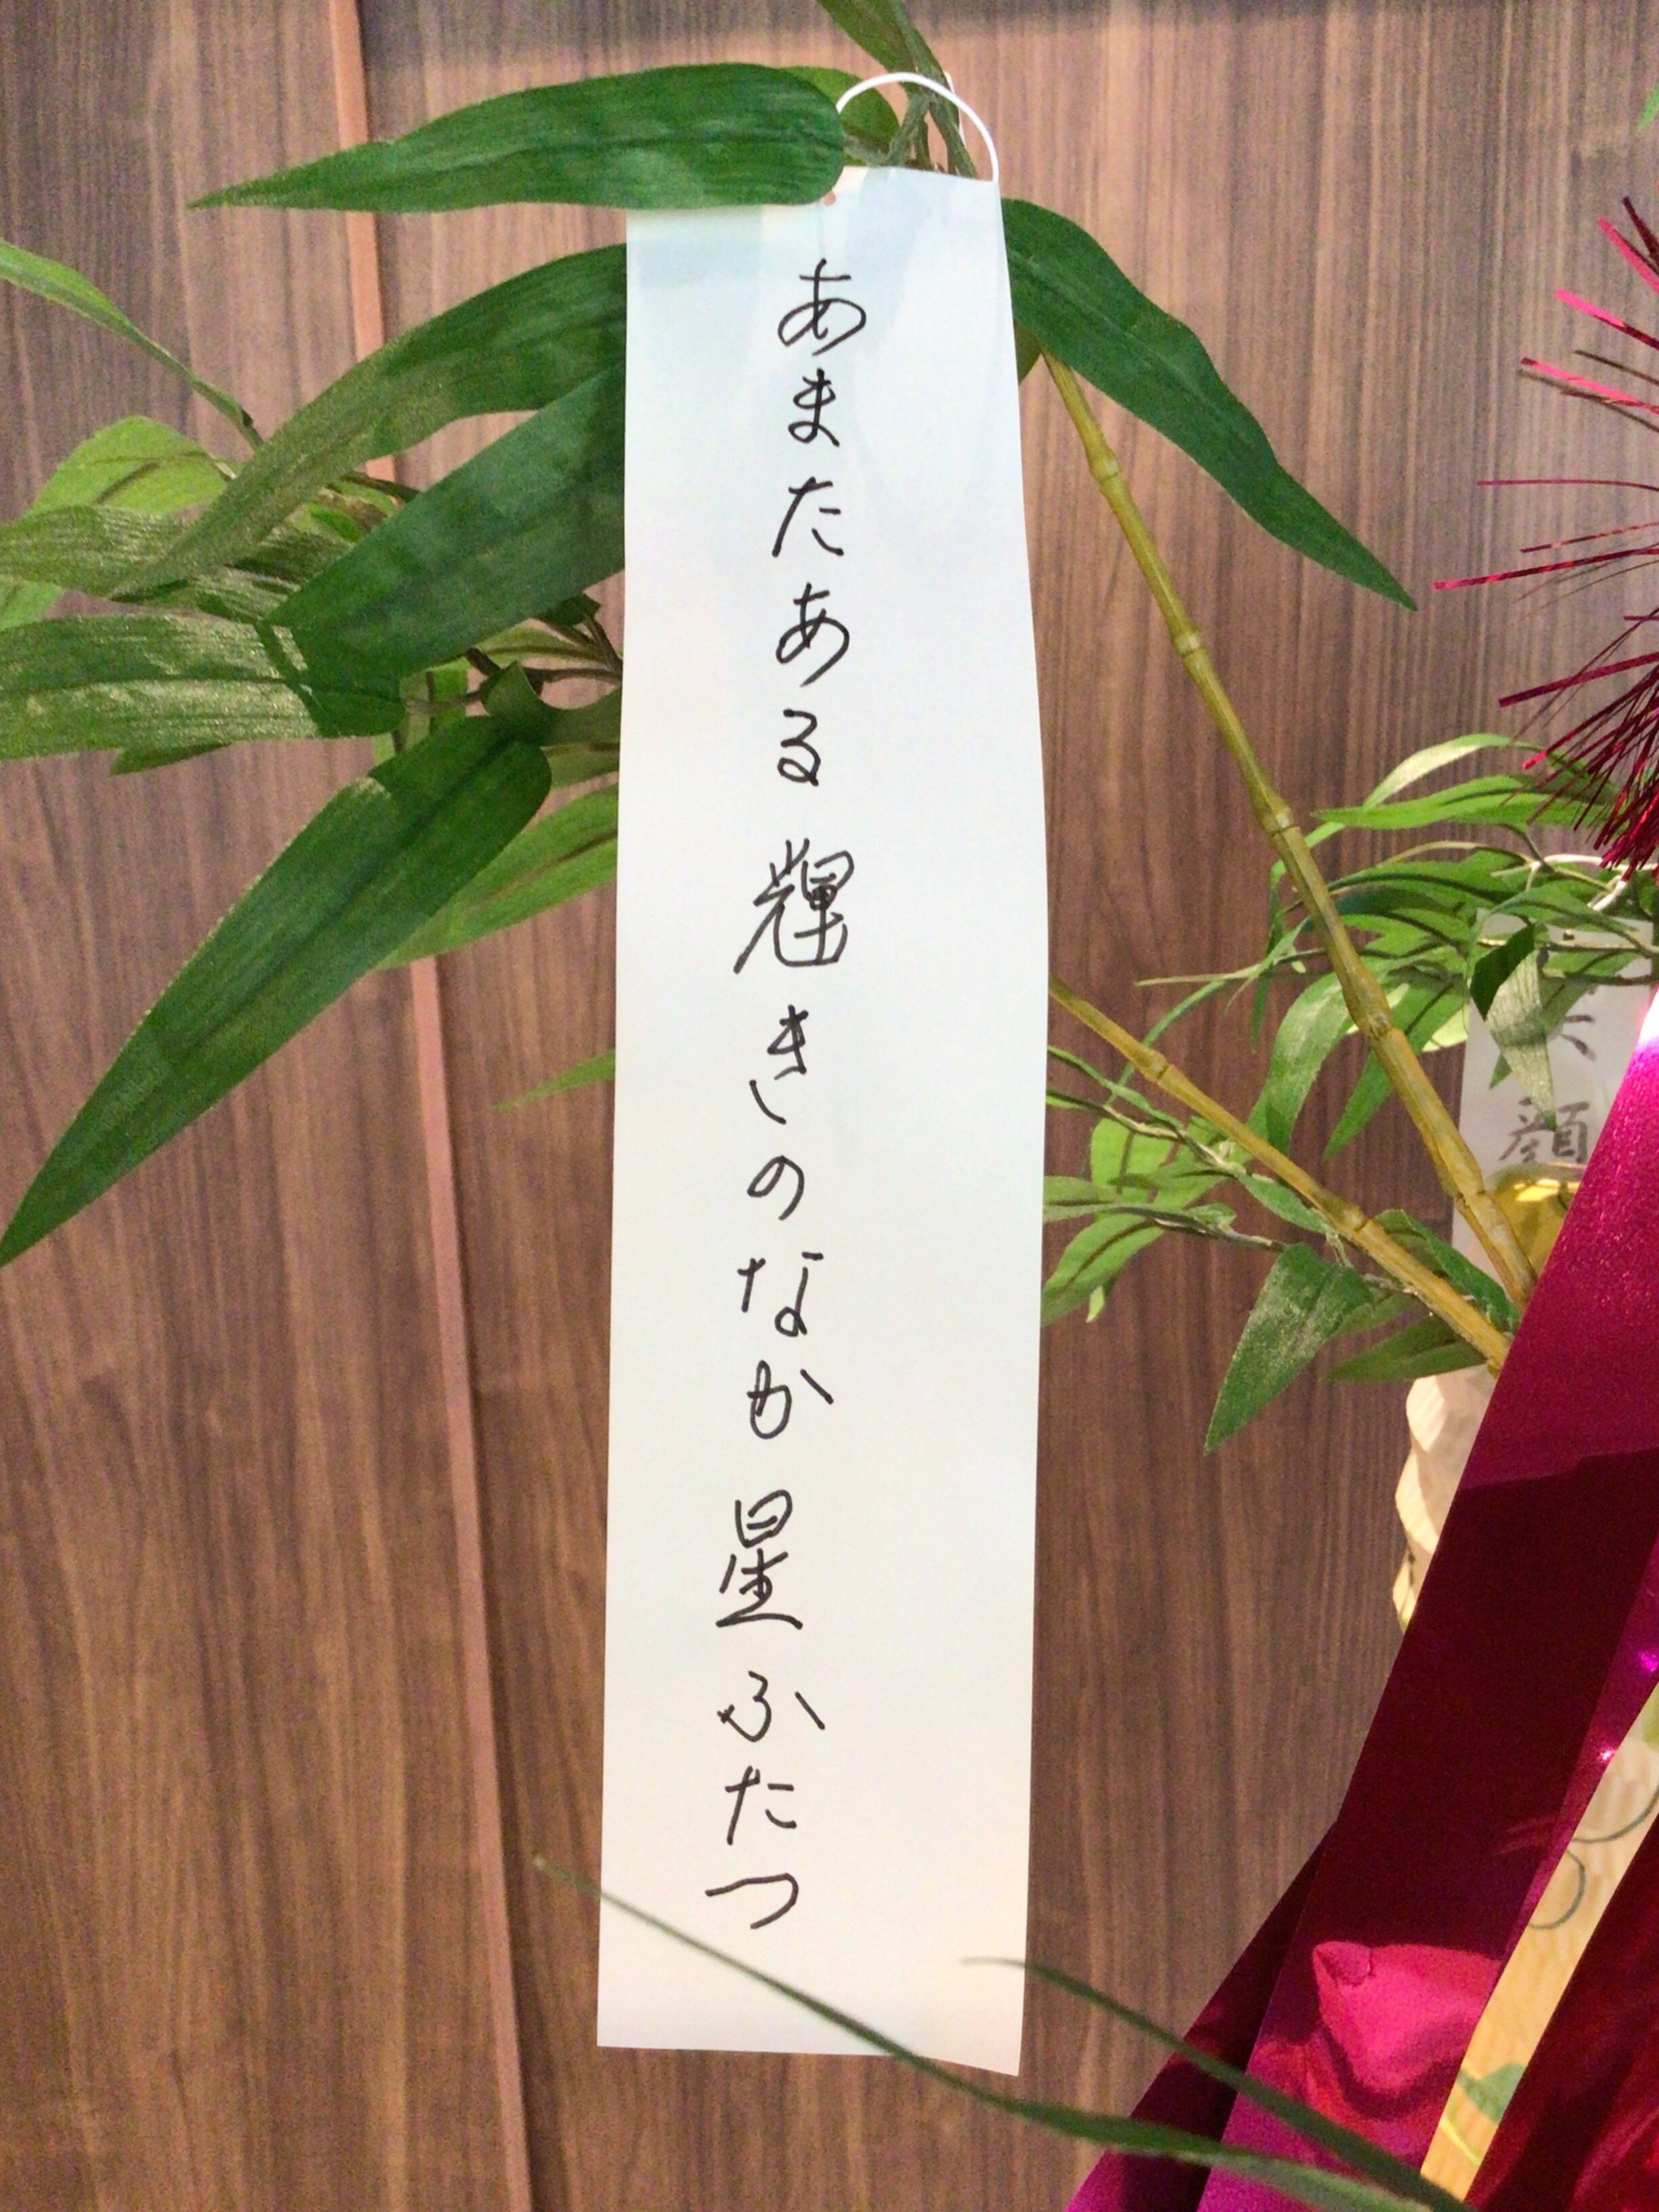 あまたある輝きのなか星ふたつ
顔